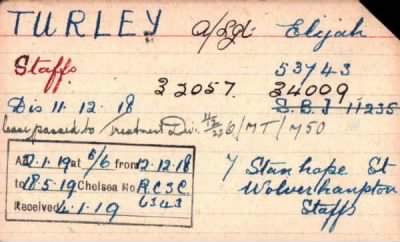 TURLEY A/Sgt Elijah
Staffs 53743
32057. 34009
Dis 11.12.18 S.B.J 11235
Case passed to Treatment Div. 6/MT/750
A 22.1.19 at 5/6 from 12.12.18
to 18.5.19 Chelsea No R.C.S.C.
6343
Received 4.1.19
7 Stanhope St
Wolverhampton
Staffs